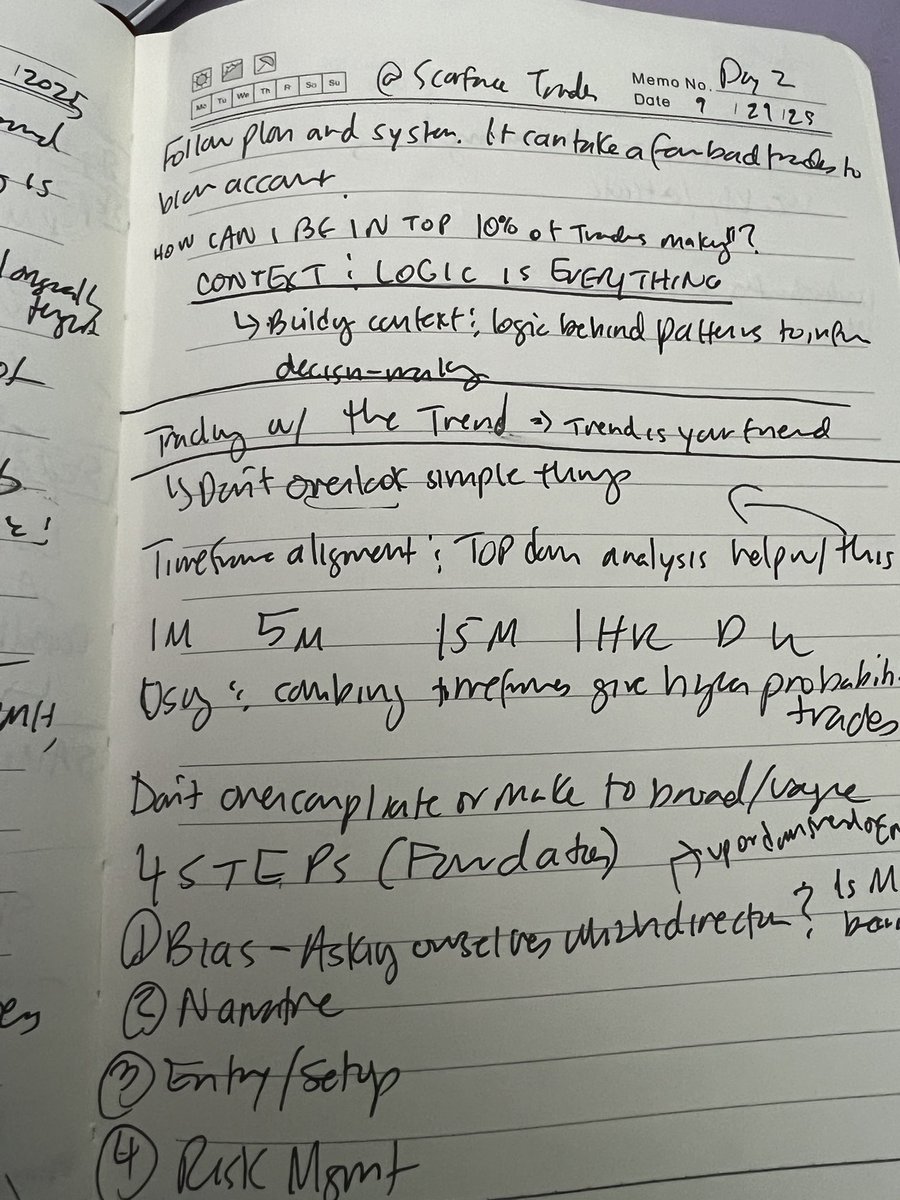 2025
is
of
Mo Tu We Th Fr Sa Su
@ Scarface Trades
Memo No. Day 2
Date 9 / 29 / 25
Follow plan and system. It can take a few bad trades to
blow account.
HOW CAN I BE IN TOP 10% of Traders making it?
CONTEXT & LOGIC IS EVERYTHING
↳ Building context & logic behind patterns to inform
decision-making
Trading w/ the Trend ⇒ Trend is your friend
↳ Don't overlook simple things
Timeframe alignment & TOP down analysis help w/ this
1M 5M 15M 1HR D W
Using & combining timeframes give higher probabili
trades
Don't overcomplicate or make to broad/vague
4 STEPS (Foundation)
↱ up or down
① Bias - Asking ourselves which direction? Is M
② Narrative
③ Entry/Setup
④ Risk Mgmt